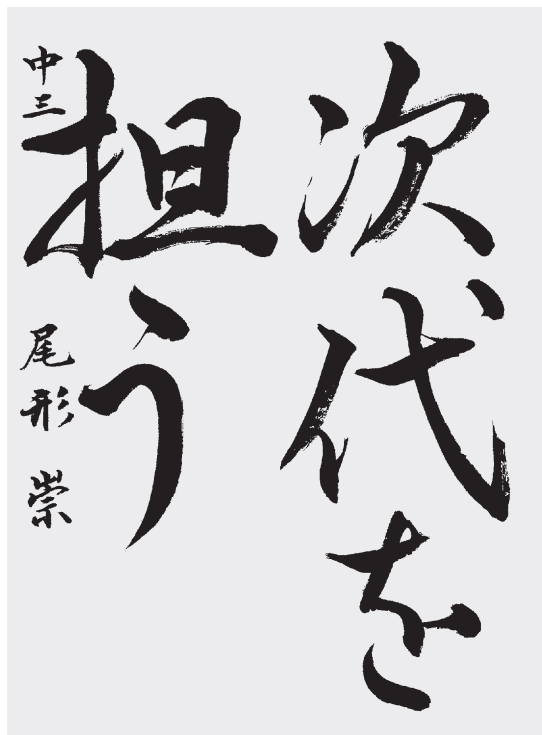 次代を
担う
中三 尾形 崇